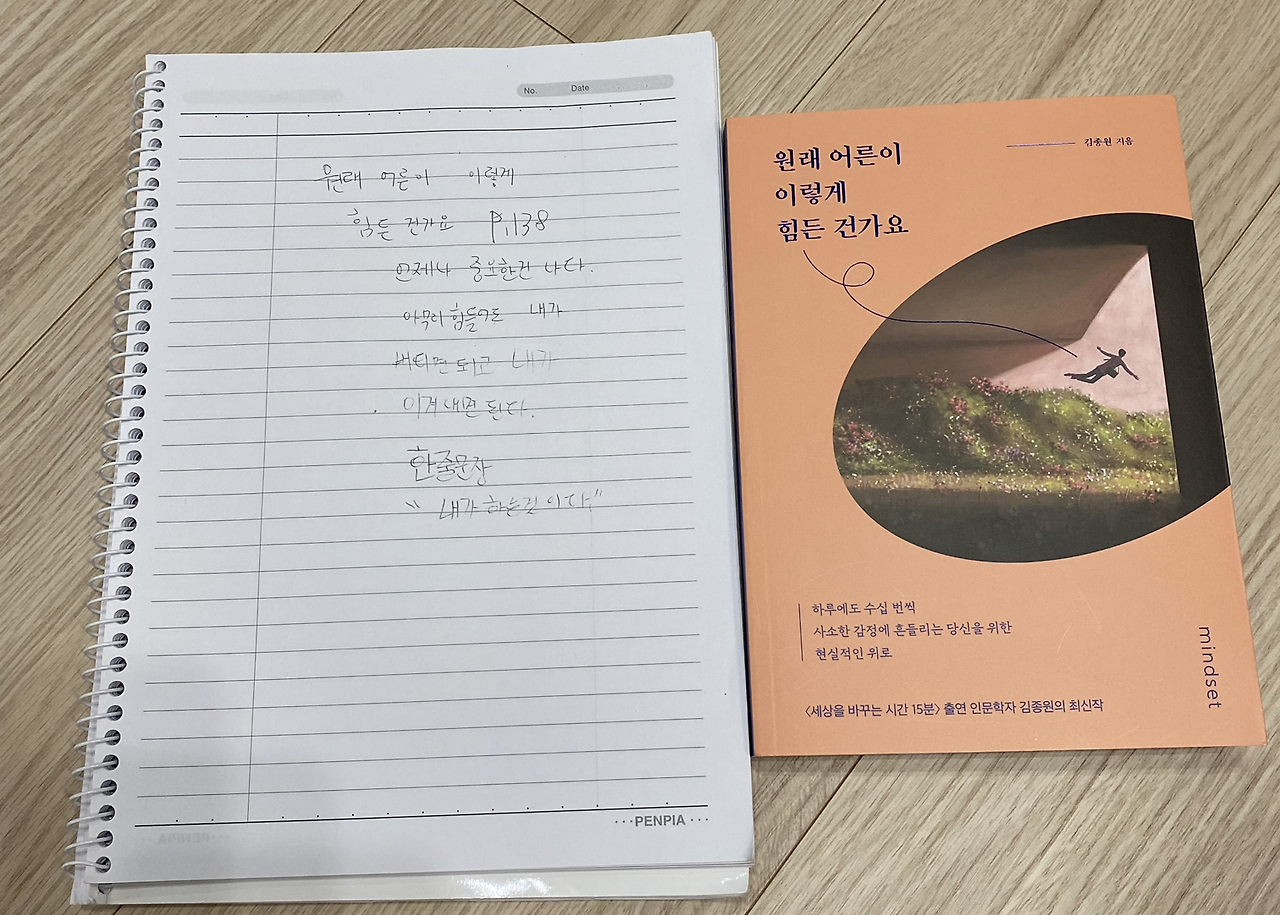 No. Date
원래 어른이 이렇게
힘든 건가요 P.138
언제나 중요한건 나다.
아무리 힘들어도 내가
버티면 되고 내가
이겨내면 된다.
한줄문장
"내가 하는것이다."
···PENPIA···
원래 어른이
이렇게
힘든 건가요
김종원 지음
하루에도 수십 번씩
사소한 감정에 흔들리는 당신을 위한
현실적인 위로
mindset
<세상을 바꾸는 시간 15분> 출연 인문학자 김종원의 최신작